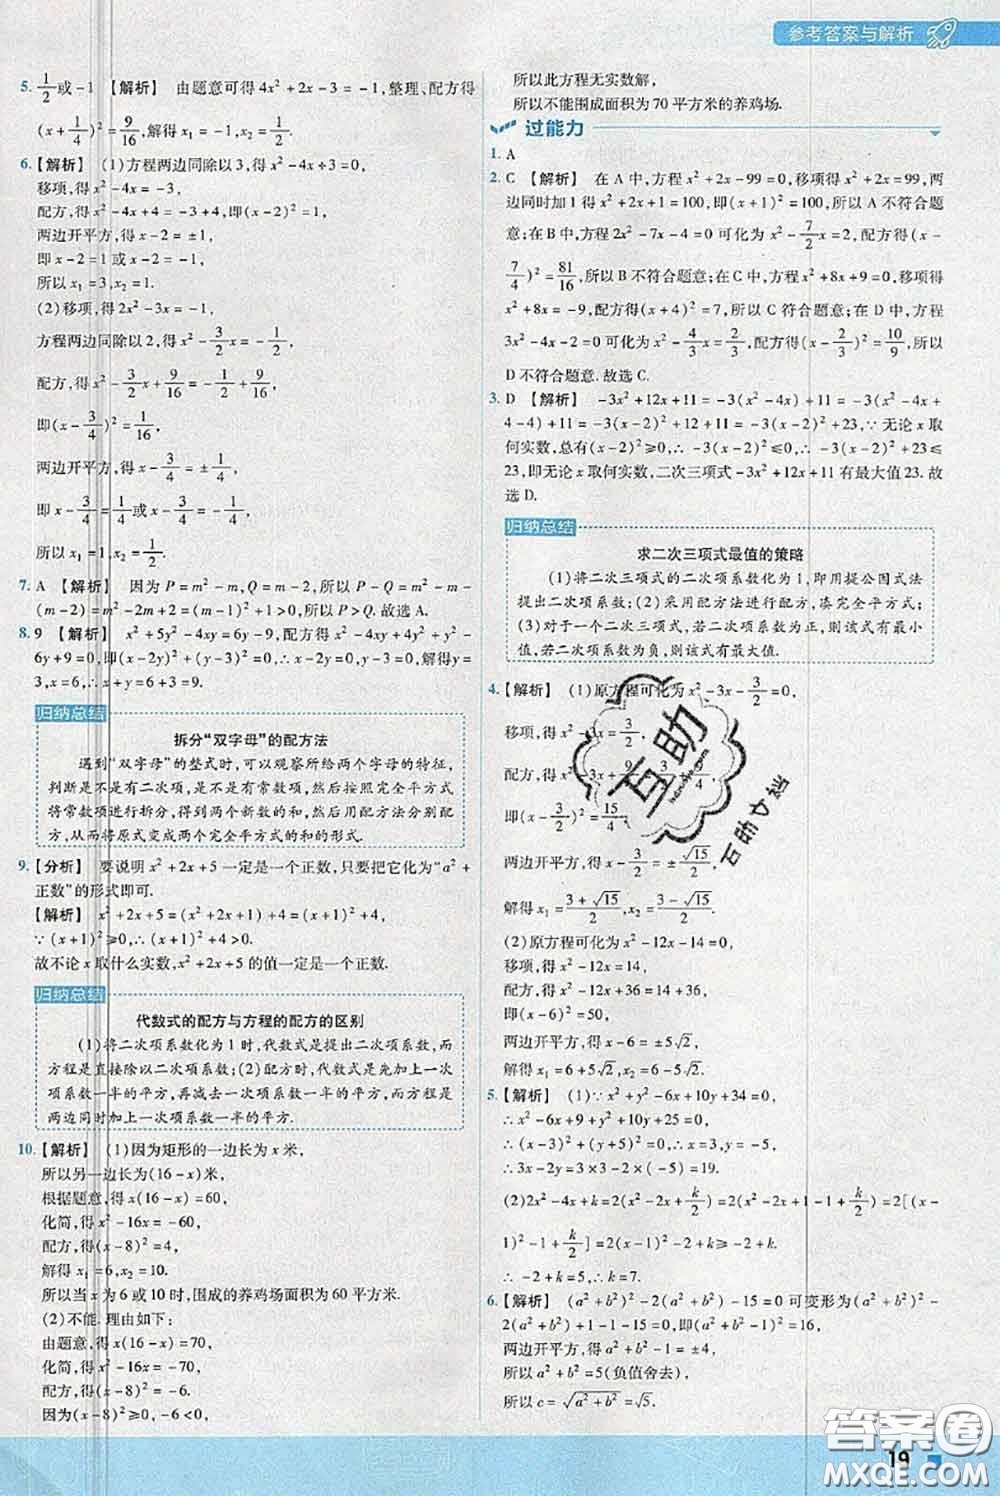 参考答案与解析
5. 1/2或-1 【解析】 由题意可得4x²+2x-3=-1,整理、配方得
(x+1/4)²=9/16,解得x₁=-1,x₂=1/2.
6. 【解析】 (1)方程两边同除以3,得x²-4x+3=0,
移项,得x²-4x=-3,
配方,得x²-4x+4=-3+4,即(x-2)²=1,
两边开平方,得x-2=±1,
即x-2=1或x-2=-1,
所以x₁=3,x₂=1.
(2)移项,得2x²-3x=-1,
方程两边同除以2,得x²-3/2x=-1/2,
配方,得x²-3/2x+9/16=-1/2+9/16,
即(x-3/4)²=1/16,
两边开平方,得x-3/4=±1/4,
即x-3/4=1/4或x-3/4=-1/4,
所以x₁=1,x₂=1/2.
7. A 【解析】 因为P=m²-m,Q=m-2,所以P-Q=m²-m-
(m-2)=m²-2m+2=(m-1)²+1>0,所以P>Q.故选A.
8. 9 【解析】 x²+5y²-4xy=6y-9,配方得x²-4xy+4y²+y²-
6y+9=0,即(x-2y)²+(y-3)²=0,∴x-2y=0,y-3=0,解得y=
3,x=6,∴x+y=6+3=9.
归纳总结
拆分“双字母”的配方法
遇到“双字母”的整式时,可以观察所给两个字母的特征,
判断是不是有二次项,是不是有常数项,然后按照完全平方式
将常数项进行拆分,分别得到两个新数的和,用配方法分别配
方,从而将原式变成两个完全平方式的和的形式.
9. 【分析】 要说明x²+2x+5一定是一个正数,只要把它化为“a²+
正数”的形式即可.
【解析】 x²+2x+5=(x²+2x+1)+4=(x+1)²+4,
∵(x+1)²≥0,∴(x+1)²+4>0.
故不论x取什么实数,x²+2x+5的值一定是一个正数.
归纳总结
代数式的配方与方程的配方的区别
(1)将二次项系数化为1时,代数式是提出二次项系数,而
方程是直接除以二次项系数;(2)配方时,代数式是先加上一
次项系数一半的平方,再减去一次项系数一半的平方,而方程是
两边同时加上一次项系数一半的平方.
10. 【解析】 (1)因为矩形的一边长为x米,
所以另一边长为(16-x)米,
根据题意,得x(16-x)=60,
化简,得x²-16x=-60,
配方,得(x-8)²=4,
解得x₁=6,x₂=10.
所以当x为6或10时,围成的养鸡场面积为60平方米.
(2)不能.理由如下:
由题意,得x(16-x)=70,
化简,得x²-16x=-70,
配方,得(x-8)²=-6.
因为(x-8)²≥0,-6<0,
所以此方程无实数解,
所以不能围成面积为70平方米的养鸡场.
过能力
1. A
2. C 【解析】 在A中,方程x²+2x-99=0,移项得x²+2x=99,两
边同时加1得x²+2x+1=100,即(x+1)²=100,所以A不符合题
意;在B中,方程2x²-7x-4=0可化为x²-7/2x=2,配方得(x-
7/4)²=81/16,所以B不符合题意;在C中,方程x²+8x+9=0化为
x²+8x=-9,配方得(x+4)²=7,所以C符合题意;在D中,方程
3x²-4x-2=0可化为x²-4/3x=2/3,配方得(x-2/3)²=10/9,所以
D不符合题意.故选C.
3. D 【解析】 -3x²+12x+11=-3(x²-4x)+11=-3(x²-4x+
4-4)+11=-3(x-2)²+12+11=-3(x-2)²+23,∵无论x取
何实数,总有(x-2)²≥0,∴-3(x-2)²≤0,∴-3(x-2)²+23≤
23,即无论x取何实数,二次三项式-3x²+12x+11有最大值23.故
选D.
归纳总结
求二次三项式最值的策略
(1)将二次三项式的二次项系数化为1,即用提公因式法
提出二次项系数;(2)采用配方法进行配方,凑完全平方式;
(3)对于一个二次三项式,若二次项系数为正,则该式有最小
值,若二次项系数为负,则该式有最大值.
4. 【解析】 (1)原方程可化为x²-3x-3/2=0,
移项,得x²-3x=3/2,
配方,得x²-3x+9/4=3/2+9/4,
即(x-3/2)²=15/4,
两边开平方,得x-3/2=±√15/2,
解得x₁=(3+√15)/2,x₂=(3-√15)/2.
(2)原方程可化为x²-12x-14=0,
移项,得x²-12x=14,
配方,得x²-12x+36=14+36,
即(x-6)²=50,
两边开平方,得x-6=±5√2,
解得x₁=6+5√2,x₂=6-5√2.
5. 【解析】 (1)∵x²+y²-6x+10y+34=0,
∴x²-6x+9+y²+10y+25=0,
∴(x-3)²+(y+5)²=0,∴x=3,y=-5,
∴3x-2y=3×3-2×(-5)=19.
(2)2x²-4x+k=2(x²-2x+k/2)=2(x²-2x+1-1+k/2)=2[(x-
1)²-1+k/2]=2(x-1)²-2+k≥-2+k,
∴-2+k=5,∴k=7.
6. 【解析】 (a²+b²)²-2(a²+b²)-15=0可变形为(a²+b²)²-
2(a²+b²)+1-1-15=0,即(a²+b²-1)²=16,
两边开平方,得a²+b²-1=±4,
所以a²+b²=5(负值舍去),
所以c=√(a²+b²)=√5.
互助
答案圈
MXQE.COM
19